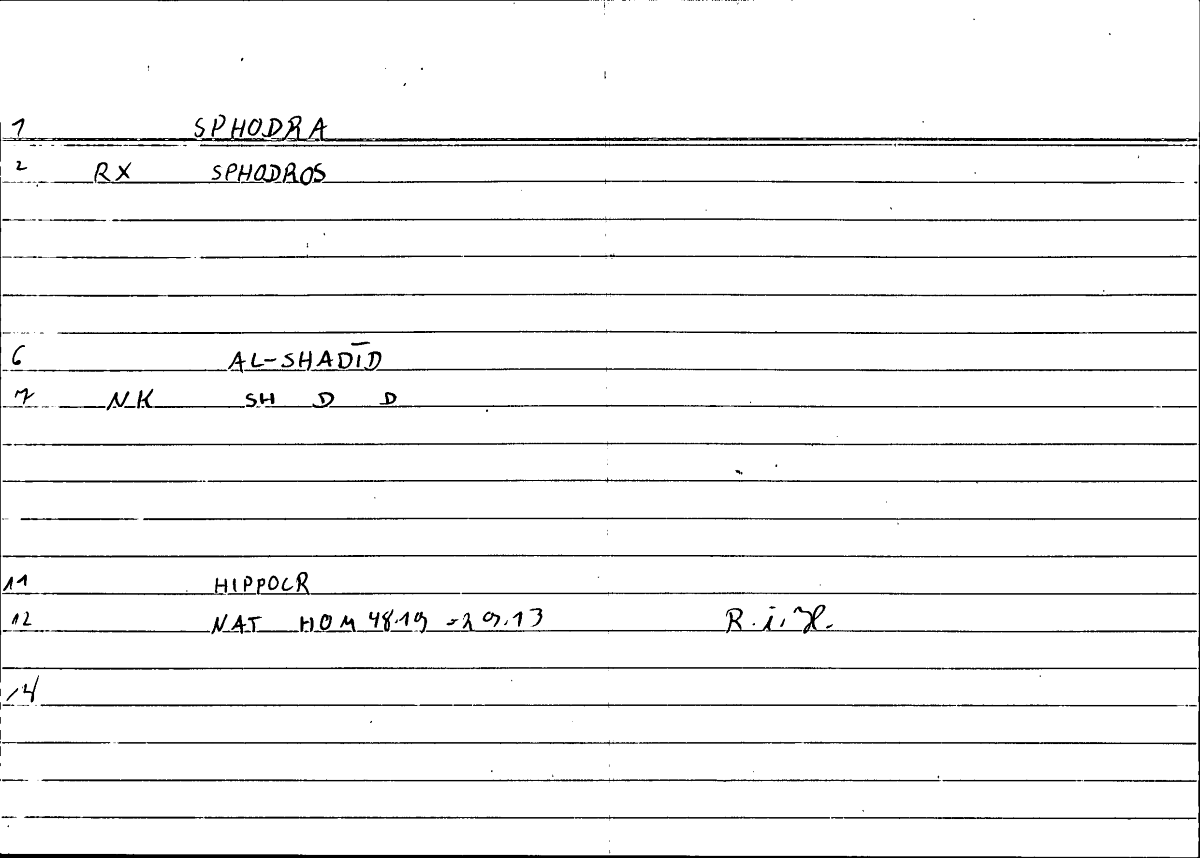 1 SPHODRA
2 RX SPHODROS
6 AL-SHADĪD
7 NK SH D D
11 HIPPOCR
12 NAT HOM 48.19 = 29.13 R.i.H.
14